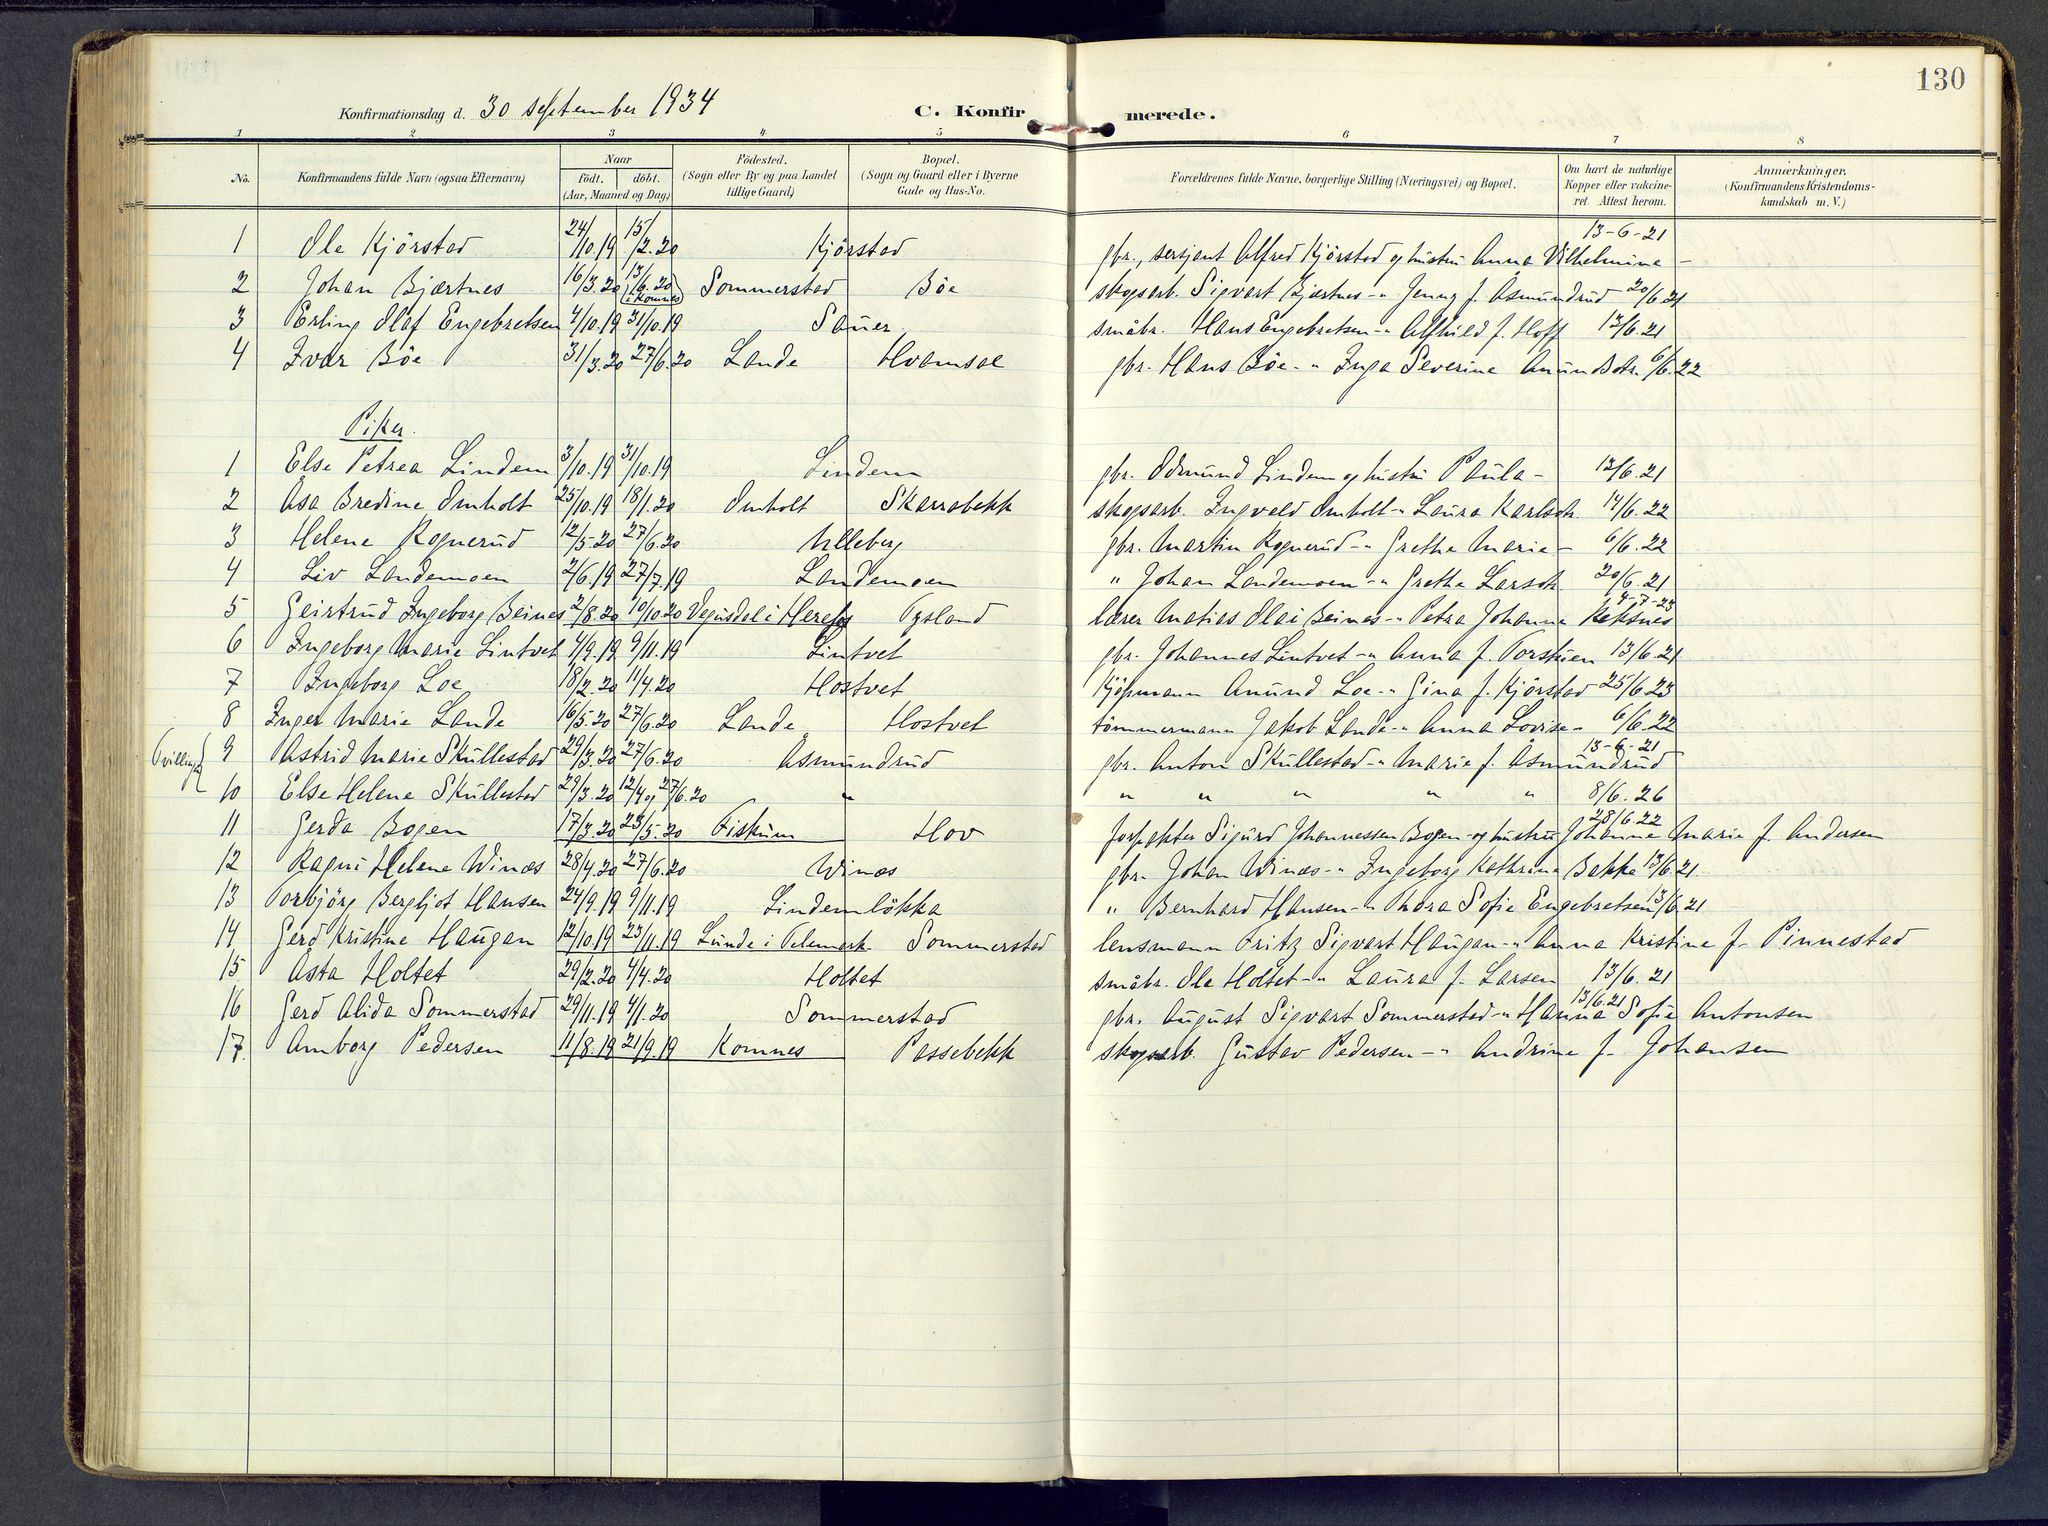 130
Konfirmationsdag d. 30 september 1934 C. Konfirmerede.
1 2 3 4 5 6 7 8
No. Konfirmandens fulde Navn (ogsaa Efternavn) Naar født. døbt. (Aar, Maaned og Dag) Födested. (Sogn eller By og paa Landet tillige Gaard) Bopæl. (Sogn og Gaard eller i Byerne Gade og Hus-No. Forældrenes fulde Navne, borgerlige Stilling (Næringsvei) og Bopæl. Om havt de naturlige Kopper eller vakcineret. Attest herom. Anmærkninger. (Konfirmandens Kristendomskundskab m. V.)
1 Ole Kjörstad 24/10.19 15/2.20 Kjörstad gbr., sersjant Alfred Kjörstad og hustru Anna Vilhelmine - 13-6-21
2 Johan Bjærtnes 16/3.20 13/6.20 i Komnes Sommerstad Böe skogsarb. Sigvart Bjærtnes -"- Jenny f. Åsmundrud 20/6.21
3 Erling Olaf Engebretsen 4/10.19 31/10.19 Sauer småbr. Hans Engebretsen -"- Alfhild f. Hoff 13/6.21
4 Ivar Böe 31/3.20 27/6.20 Lande Hvamsal gbr. Hans Böe -"- Inga Severine Anundsdtr. 6/6.22
Piker
1 Else Petrea Lindem 3/10.19 31/10.19 Lindem gbr. Odmund Lindem og hustru Paula - 13/6.21
2 Åsa Bredine Omholt 25/10.19 18/1.20 Omholt Skarrabekk skogsarb. Ingvald Omholt -"- Laura Karlsdtr. 14/6.22
3 Helene Rognerud 12/5.20 27/6.20 Ulleberg gbr. Martin Rognerud -"- Grethe Marie - 6/6.22
4 Liv Landemoen 2/6.19 27/7.19 Landemoen " Johan Landemoen -"- Grethe Larsdtr. 20/6.21
5 Geirtrud Ingeborg Beines 2/8.20 10/10.20 Vegusdal i Herefos Fysland lærer Matias Olai Beines -"- Petra Johanna Reksnes 4-7-23
6 Ingeborg Marie Lintvet 4/9.19 9/11.19 Lintvet gbr. Johannes Lintvet -"- Anna f. Torstien 13/6.21
7 Ingeborg Loe 18/2.20 11/4.20 Hostvet kjöpmann Anund Loe -"- Gina f. Kjörstad 25/6.23
8 Inger Marie Lande 16/5.20 27/6.20 Lande Hostvet tömmermann Jakob Lande -"- Anna Lovise - 6/6.22
Tvillinger 9 Astrid Marie Skullestad 29/3.20 27/6.20 Åsmundrud gbr. Anton Skullestad -"- Marie f. Åsmundrud 13-6-21
10 Else Helene Skullestad 29/3.20 12/4 og 27/6.20 " " " " " " 8/6.26
11 Gerda Bogen 17/3.20 23/5.20 Fiskum Hov forpakter Sigurd Johannessen Bogen - og hustru Johanne Marie f. Andersen 28/6.22
12 Ragni Helene Winæs 28/4.20 27/6.20 Winæs gbr. Johan Winæs -"- Ingeborg Kathrine Bakke 13/6.21
13 Torbjörg Bergljot Hansen 24/9.19 9/11.19 Lindemlökka " Bernhard Hansen -"- Thora Sofie Engebretsen 13/6.21
14 Gerd Kristine Haugan 12/10.19 23/11.19 Lunde i Telemark Sommerstad lensmann Fritz Sigvart Haugan -"- Anna Kristine f. Pinnestad
15 Asta Holtet 29/2.20 4/4.20 Holtet småbr. Ole Holtet -"- Laura f. Larsen 13/6.21
16 Gerd Alida Sommerstad 29/11.19 4/1.20 Sommerstad gbr. August Sigvart Sommerstad -"- Hanna Sofie Antonsen 13/6.21
17. Amborg Pedersen 11/8.19 21/9.19 Komnes Passebekk skogsarb. Gustav Pedersen -"- Andrine f. Johansen